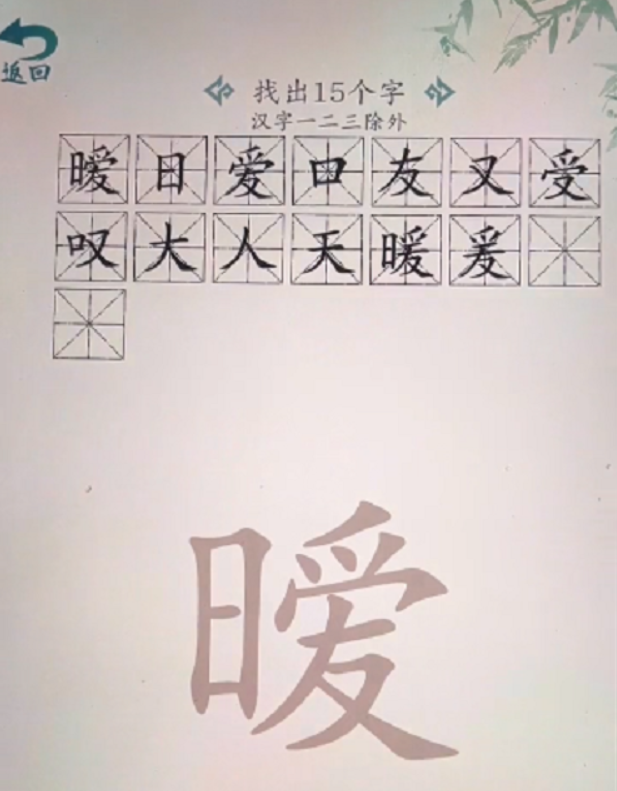 返回
找出15个字
汉字一二三除外
暧日爱口友又受
叹大人天暖爰
暧